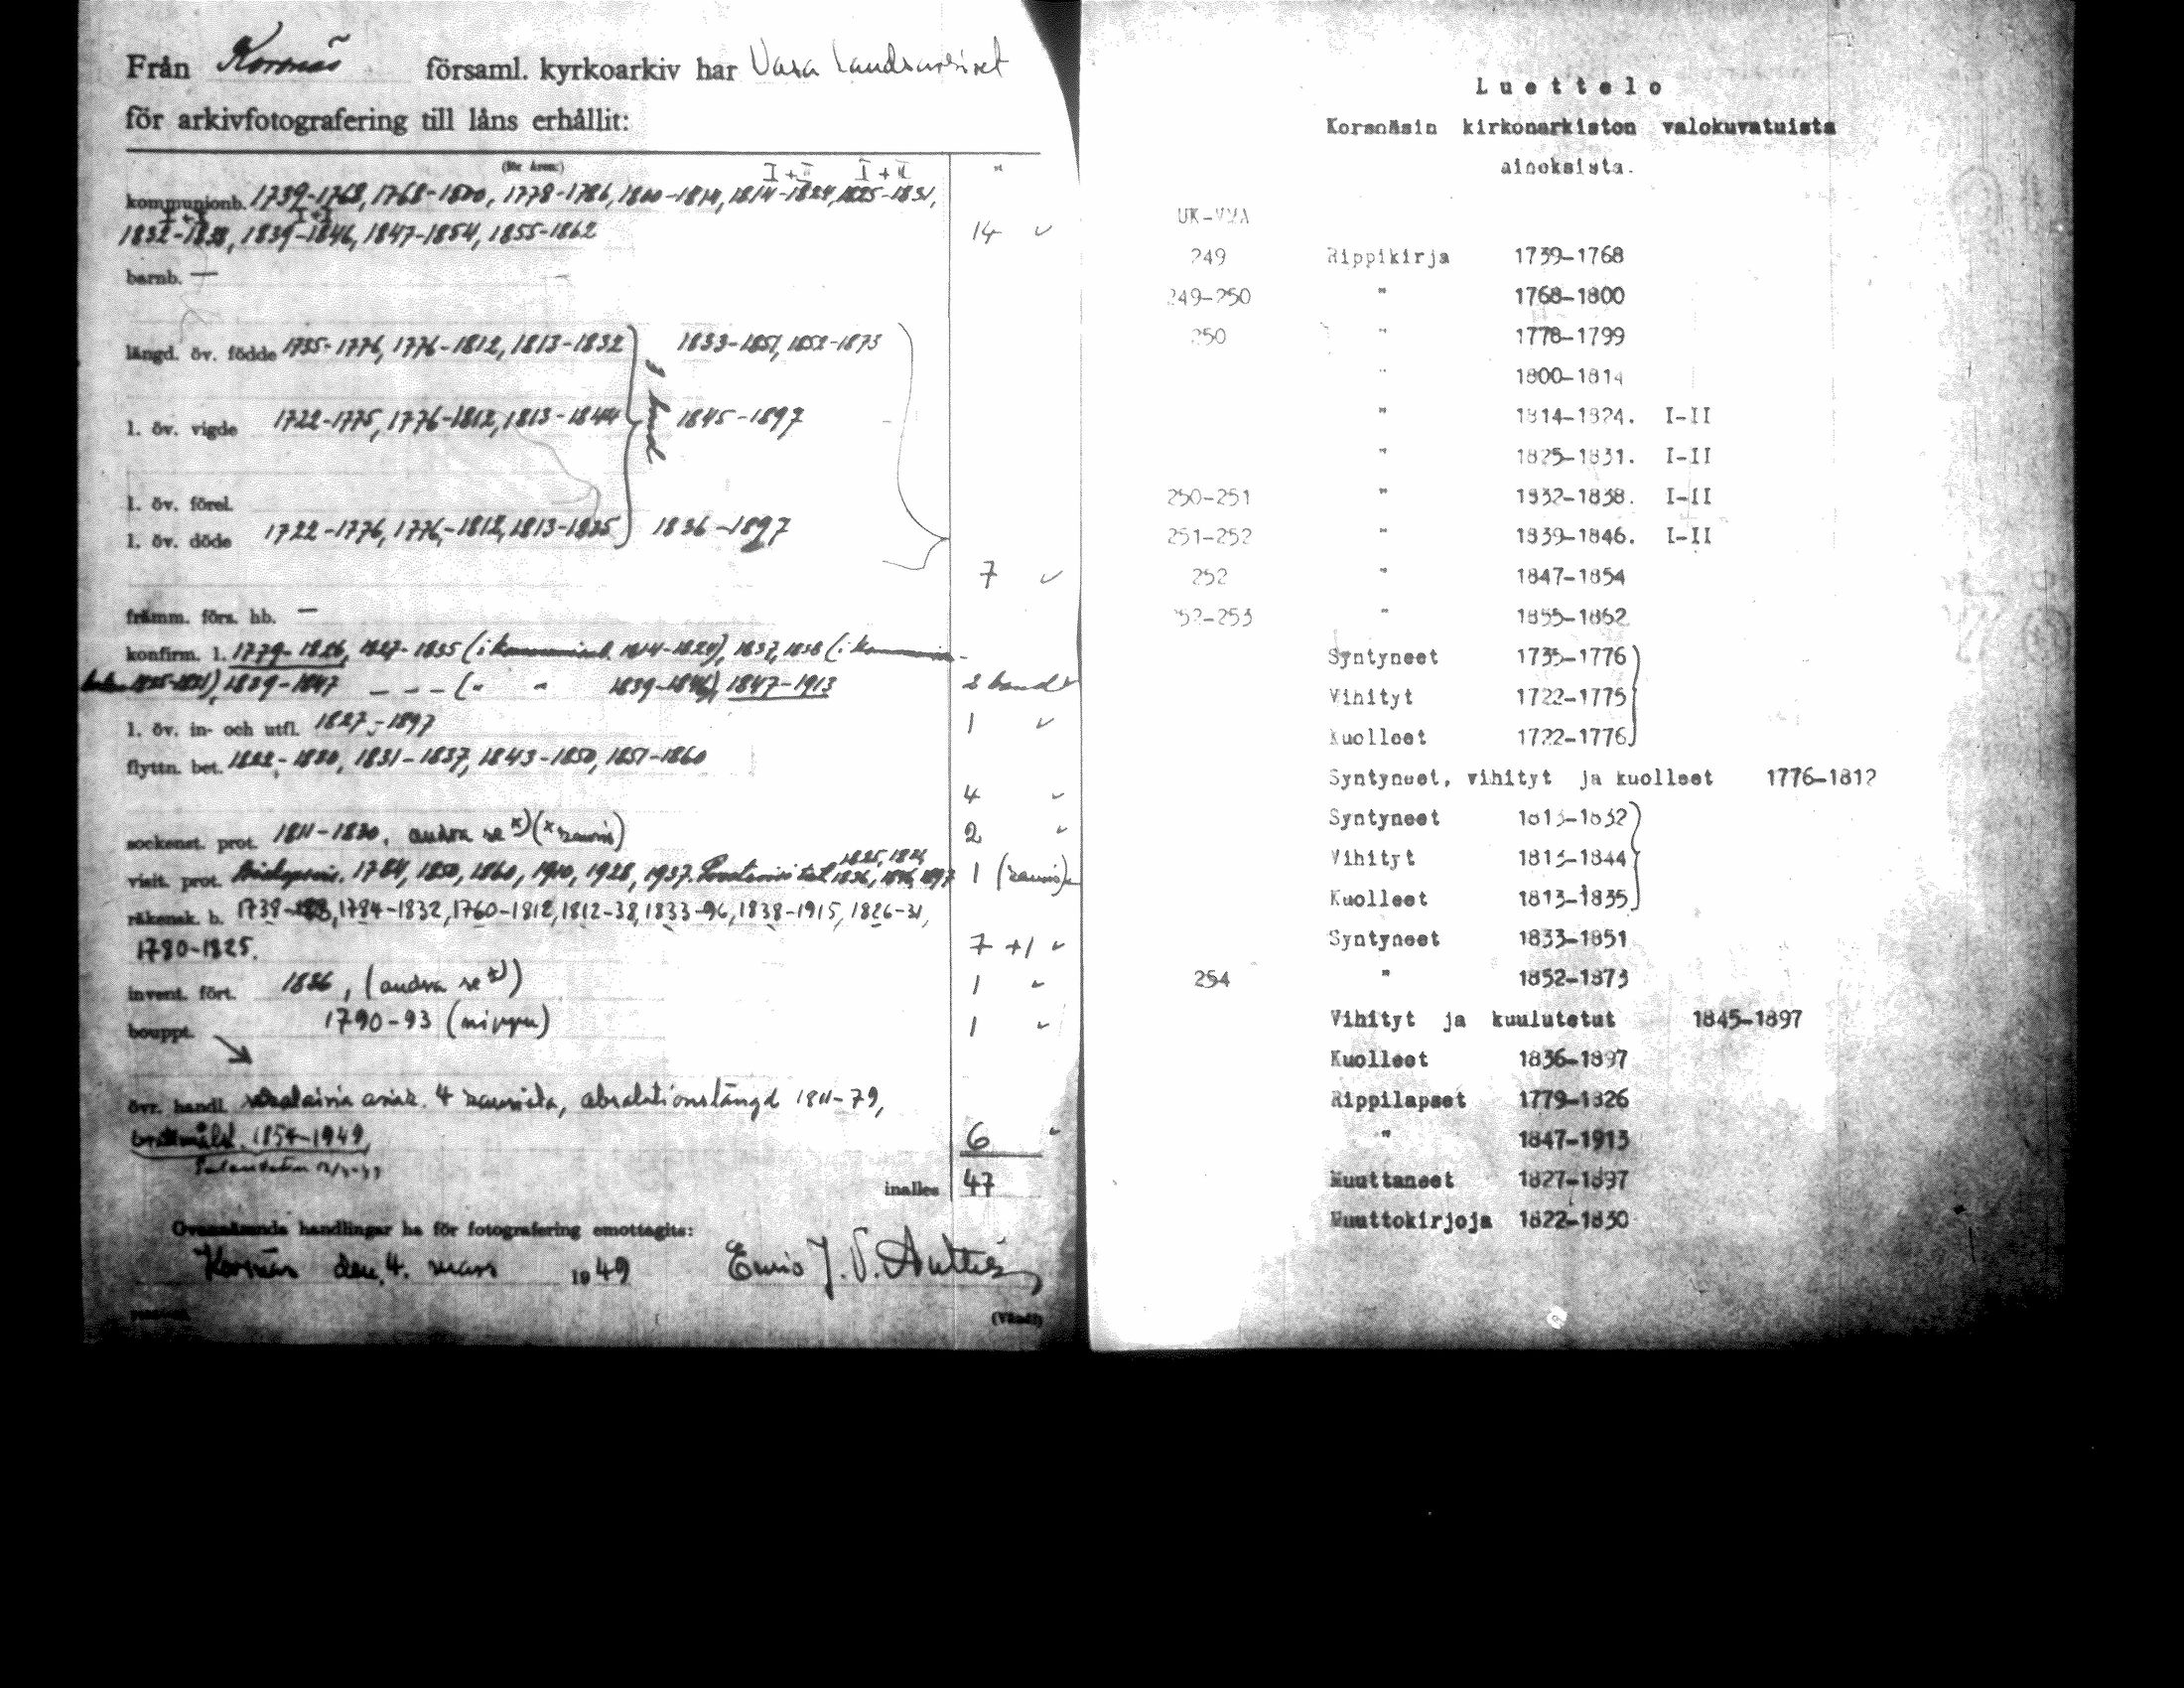 Från Korsnäs församl. kyrkoarkiv har Vasa Landsarkivet
för arkivfotografering till låns erhållit:
(för åren:)
I + II I + II
kommunionb. 1739-1768, 1768-1800, 1778-1786, 1800-1814, 1814-1824, 1825-1831,
I+I I+I
1832-1838, 1839-1846, 1847-1854, 1855-1862 14
barnb. —
längd. öv. födde 1735-1776, 1776-1812, 1813-1832 1833-1851, 1852-1873
3 band
l. öv. vigde 1722-1775, 1776-1812, 1813-1844 1845-1897
l. öv. förel.
l. öv. döde 1722-1776, 1776-1812, 1813-1835 1836-1897
7
främm. förs. hb. —
konfirm. l. 1779-1826, 1827-1835 (i 1814-1824), 1837, 1838 (i
1825-1831), 1839-1847 - - - (" " 1839-1846), 1847-1913 2 band
l. öv. in- och utfl. 1827-1897 1
flyttn. bet. 1822-1830, 1831-1837, 1843-1850, 1851-1860
4
sockenst. prot. 1811-1830, andra se x) 2
visit. prot. 1784, 1850, 1860, 1910, 1928, 1937. 1
räkensk. b. 1784-1832, 1760-1812, 1812-38, 1833-96, 1838-1915, 1826-31,
1790-1825. 7 +1
invent. fört. 1836, (andra se x)) 1
bouppt. 1790-93 1
övr. handl. 4 absolutionslängd 1811-79,
1854-1949, 6
inalles 47
Ovannämnda handlingar ha för fotografering emottagits:
Korsnäs den 4. mars 1949
(Vänd!)
Luettelo
Korsnäsin kirkonarkiston valokuvatuista
ainoksista.
UK-VMA
249 Rippikirja 1739-1768
249-250 " 1768-1800
250 " 1778-1799
" 1800-1814
" 1814-1824. I-II
" 1825-1831. I-II
250-251 " 1832-1838. I-II
251-252 " 1839-1846. I-II
252 " 1847-1854
252-253 " 1855-1862
Syntyneet 1735-1776
Vihityt 1722-1775
Kuolleet 1722-1776
Syntyneet, vihityt ja kuolleet 1776-1812
Syntyneet 1813-1832
Vihityt 1813-1844
Kuolleet 1813-1835
Syntyneet 1833-1851
254 " 1852-1873
Vihityt ja kuulutetut 1845-1897
Kuolleet 1836-1897
Rippilapset 1779-1826
" 1847-1913
Muuttaneet 1827-1897
Muuttokirjoja 1822-1830